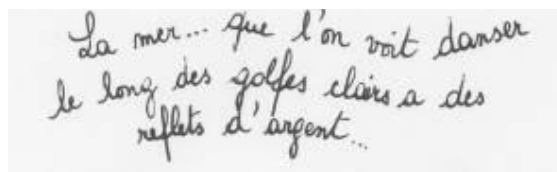 La mer... que l'on voit danser
le long des golfes clairs a des
reflets d'argent...